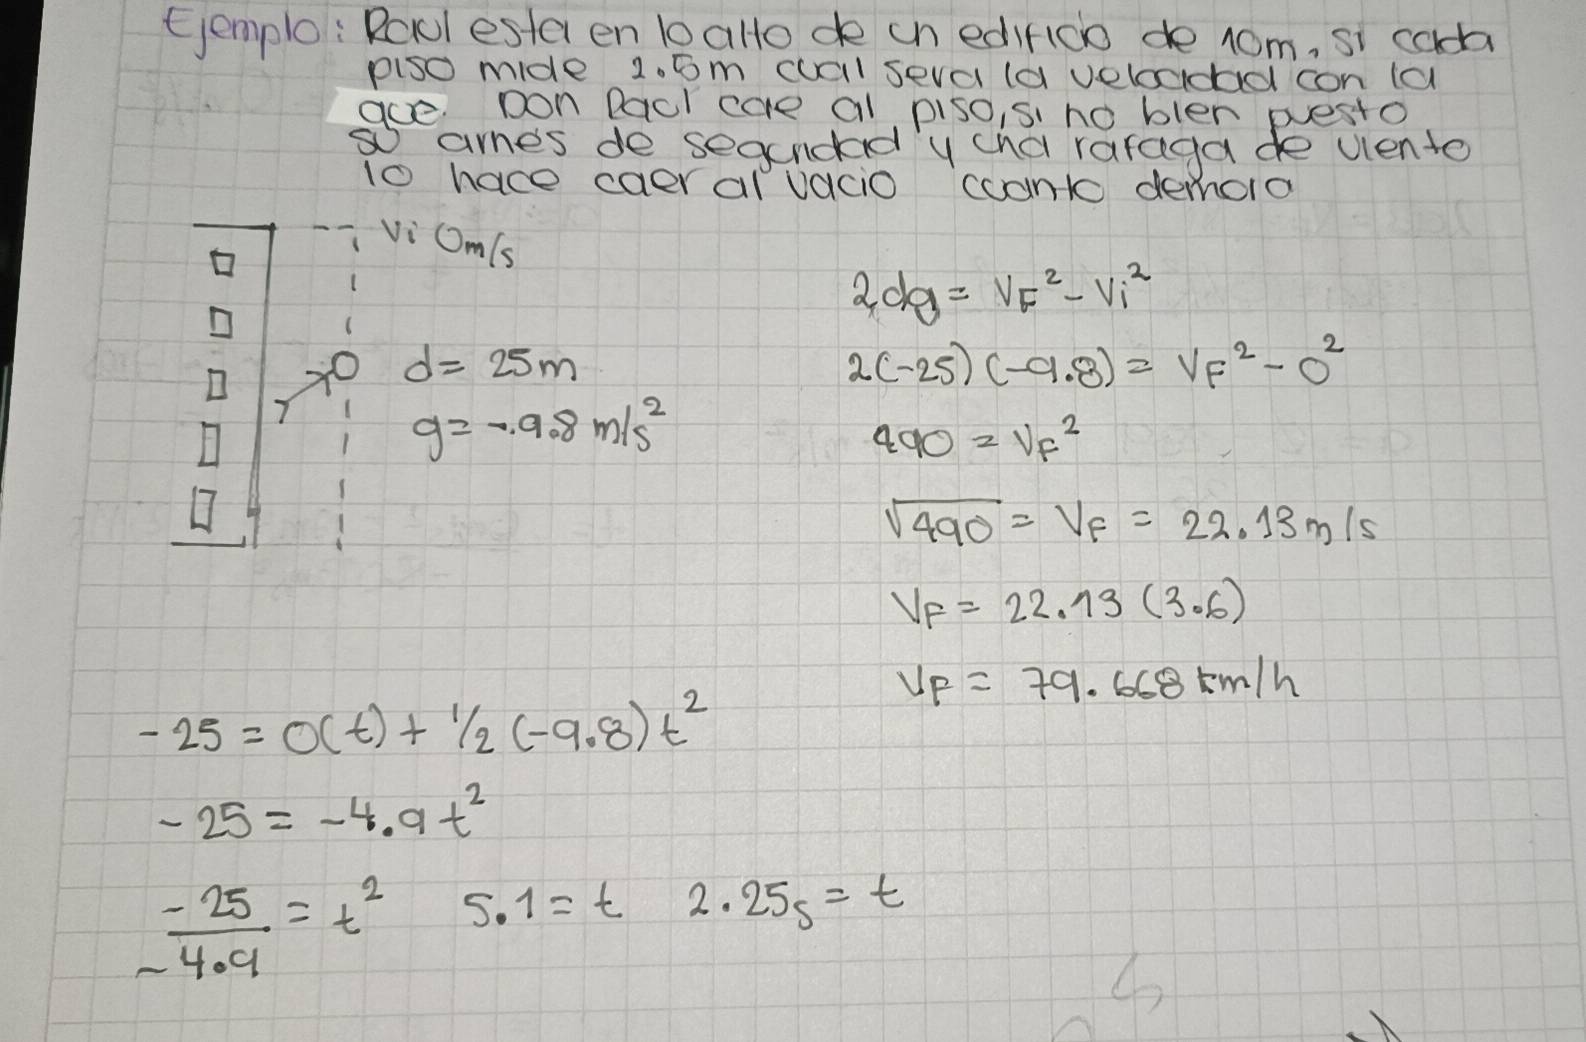 Ejemplo: Raul esta en lo alto de un edificio de 10m, si cada
piso mide 2.5m cual sera la velocidad con la
que Don Raul cae al piso, si no bien puesto
su arnes de seguridad y una rafaga de viento
lo hace caer al vacio cuanto demora
Vi 0m/s
d= 25m
g= -9.8 m/s²
2dg = VF² - Vi²
2(-25)(-9.8) = VF² - 0²
490 = VF²
√490 = VF = 22.13 m/s
VF = 22.13 (3.6)
VF = 79.668 km/h
-25 = 0(t) + 1/2 (-9.8) t²
-25 = -4.9 t²
-25/-4.9 = t² 5.1 = t 2.25s = t